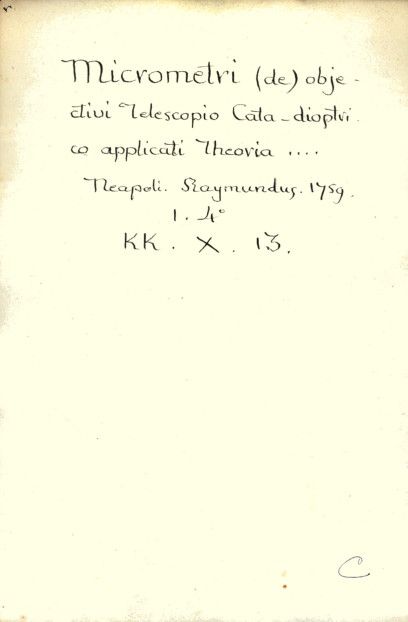 Micrometri (de) obje-
ctivi Telescopio Cata-dioptri.
co applicati Theoria ....
Neapoli. Raymundus. 1759.
1. 4°
KK. X. 13.
C